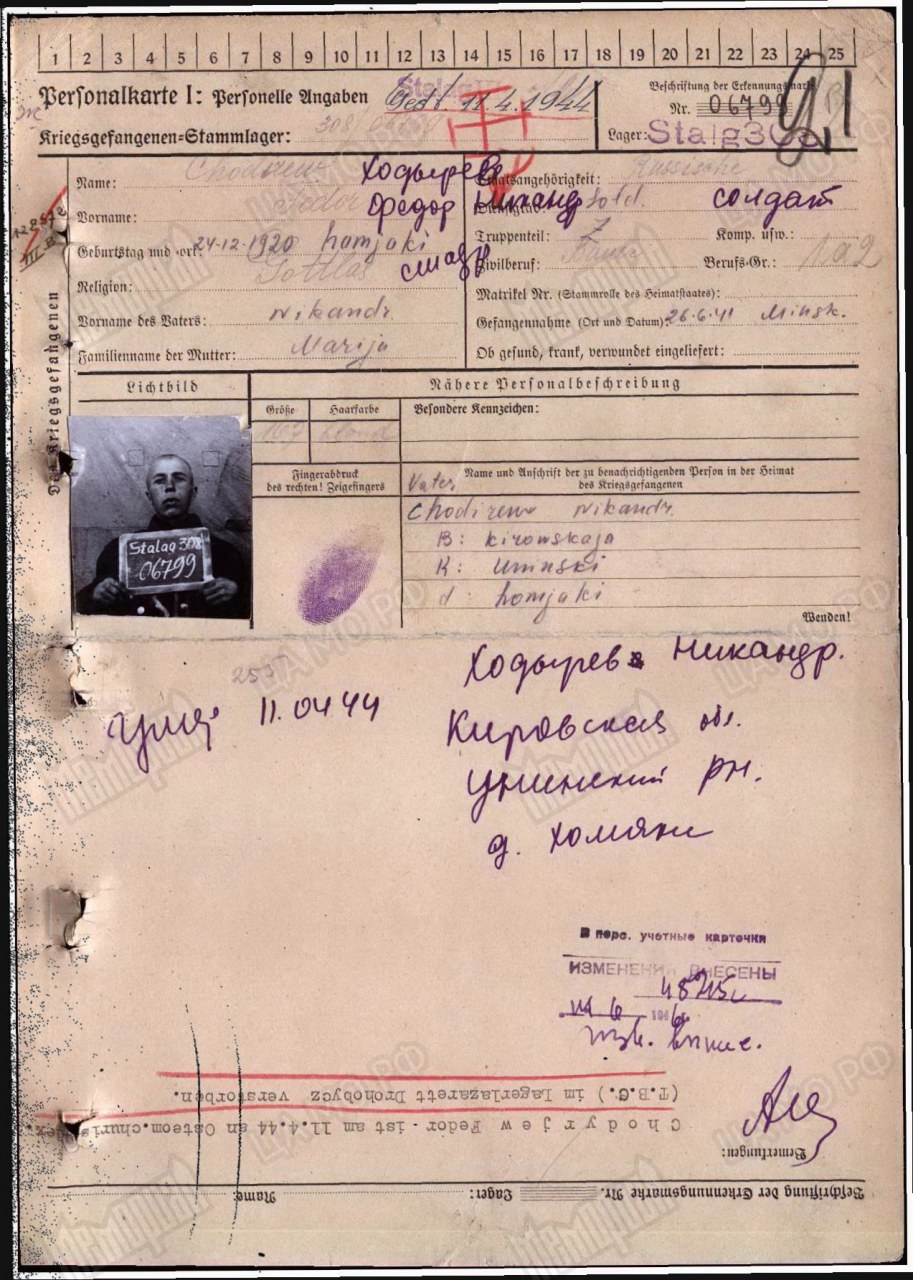 1 2 3 4 5 6 7 8 9 10 11 12 13 14 15 16 17 18 19 20 21 22 23 24 25
Personalkarte I: Personelle Angaben
Gest. 11.4.1944
Beschriftung der Erkennungsmarke
Nr. 06799
Kriegsgefangenen-Stammlager:
Lager: Stalag 308
Des Kriegsgefangenen
Name: Chodirew Ходырев
Staatsangehörigkeit: Russische
Vorname: Fedor Федор Никандр
Dienstgrad: Sold. солдат
Geburtstag und -ort: 24.12.1920 homjaki
Truppenteil:
Komp. usw.:
Religion:
Zivilberuf: Bauer
Berufs-Gr.:
Matrikel Nr. (Stammrolle des Heimatstaates):
Vorname des Vaters: Nikandr
Gefangennahme (Ort und Datum): 26.6.41 Minsk.
Familienname der Mutter: Marija
Ob gesund, krank, verwundet eingeliefert:
Lichtbild
Nähere Personalbeschreibung
Größe
Haarfarbe
Besondere Kennzeichen:
167
blond
Fingerabdruck
des rechten! Zeigefingers
Name und Anschrift der zu benachrichtigenden Person in der Heimat
des Kriegsgefangenen
Vater
Chodirew Nikandr.
B: kirowskaja
K: Uninski
d: homjaki
Wenden!
Stalag 308
06799
Ходырев Никандр.
253
Умер 11.04 44
Кировская обл.
Унинский рн.
д. Хомяки
В перс. учетные карточки
ИЗМЕНЕНИЯ ВНЕСЕНЫ
(T.B.C.) im Lagerlazarett Drohobycz verstorben.
Chodyrjew Fedor - ist am 11.4.44 an Osteom.
Bemerkungen:
Beschriftung der Erkennungsmarke Nr.
Lager:
Name
ЦАМО РФ
МЕМОРИАЛ